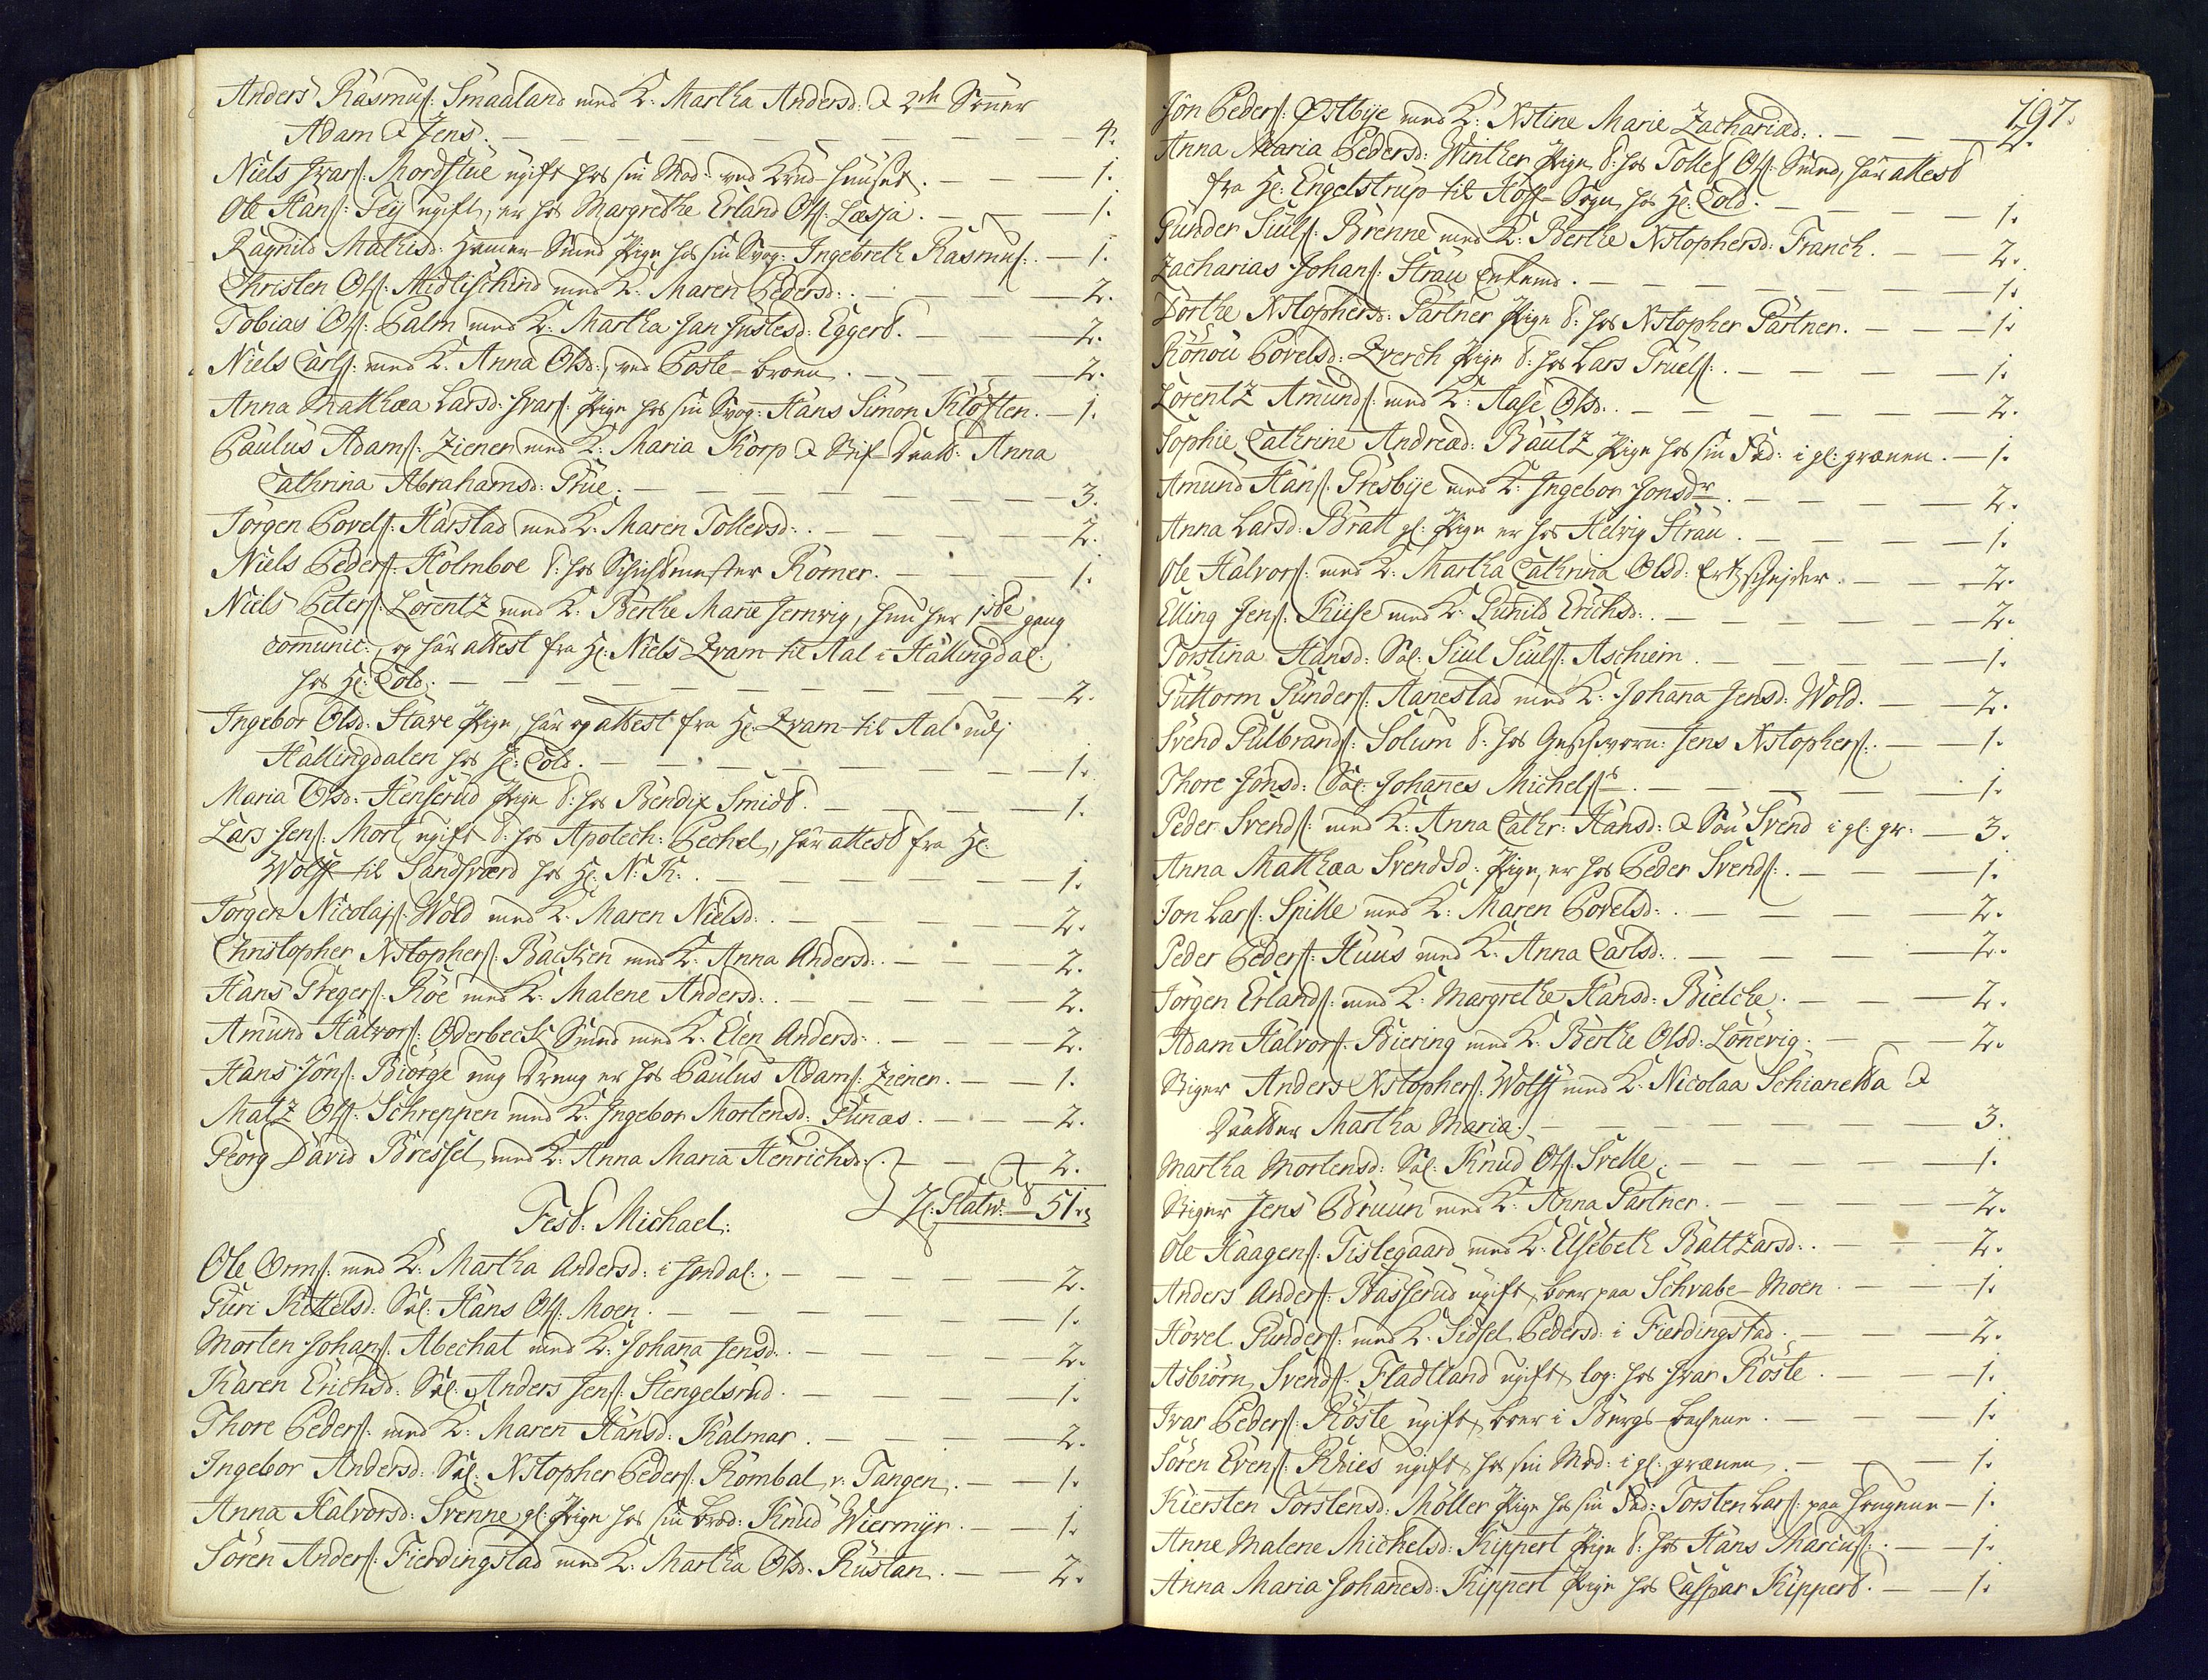 Anders Rasmus: Smaaland med K: Martha Andersd: & 2de Sönner
Adam & Jens. — 4.
Niels Ivars: Mordstue ugift hos sin Mod: ved Brød-huuset. — 1.
Ole Hans: Teÿ ugift, er hos Margrethe Erland Ols: Læsja. — 1.
Ragnild Mathisd: Hammer-Smed Pige hos sin Svog: Ingebreth Rasmus: — 1.
Christen Ols: Midtischind med K: Maren Pedersd: — 2.
Tobias Ols: Palm med K: Martha Jan Justesd: Eggert. — 2.
Niels Carls: med K: Anna Olsd: ved Poste-broen. — 2.
Anna Mathæa Larsd: Ivars: Pige hos sin Svog: Hans Simon Klöften. — 1.
Paulus Adams: Ziener med K: Maria Korp & Stif-Daatt: Anna
Cathrina Abrahamsd: Prüe. — 3.
Jörgen Povels: Harstad med K: Maren Tollevsd: — 2.
Niels Peders: Holmboe t: hos Schichtmester Römer. — 1.
Niels Peters: Lorentz med K: Berthe Marie Jernvig, hun her 1ste gang
comunic:, og har attest fra Hr: Niels Zram til Aal i Hallingdal
hos Hr: Told. — 2.
Ingebor Olsd: Stave Pige, har og attest fra Hr: Zram til Aal udj
Hallingdalen hos Hr: Told. — 1.
Maria Olsd: Henserud Pige t: hos Bendix Smidt. — 1.
Lars Jens: Mort ugift t: hos Apotech: Pechel, har attest fra Hr:
Wolff til Sandsværd hos Hr: N: K: — 1.
Jörgen Nicolajs: Wold med K: Maren Nielsd: — 2.
Christopher Xstophers: Backen med K: Anna Andersd: — 2.
Hans Gregers: Röe med K: Malene Andersd: — 2.
Amund Halvors: Oderbeck Smed med K: Elen Andersd: — 2.
Hans Jöns: Biörge ung Dreng er hos Paulus Adams: Ziener. — 1.
Matz Ols: Schreppen med K: Ingebor Mortensd: Funæs. — 2.
Georg David Bressel, med K: Anna Maria Henrichsd: — 2.
Fest: Michael: 51.
Ole Orms: med K: Martha Andersd: i Jondal: — 2.
Guri Kittelsd: Sal: Hans Ols: Moen. — 1.
Morten Johans: Abechat med K: Johana Jensd: — 2.
Karen Erichsd: Sal: Anders Jens: Stengelsrud. — 1.
Thore Peders: med K: Maren Hansd: Kalmar. — 2.
Ingebor Andersd: Sal: Xstopher Peders: Rombal v: Tangen. — 1.
Anna Halvorsd: Svenne gl: Pige hos sin Brod: Knud Wiermyr. — 1.
Sören Anders: Fierdingstad med K: Martha Olsd: Rustan. — 2.
197.
Jön Peders: Østbÿe med K: Xstine Marie Zachariæd: — 2.
Anna Maria Pedersd: Winther Pige t: hos Tollef Ols: Smed, har attest
fra Hr: Engelstrup til Hoff-Sogn hos Hr: Told. — 1.
Gunder Siuls: Brenne med K: Berthe Xstophersd: Franch. — 2.
Zacharias Johans: Strau Enkemd. — 1.
Dorthe Xstophersd: Gartner Pige t: hos Xstopher Gartner. — 1.
Rönou Povelsd: Zverch Pige t: hos Lars Truels: — 1.
Lorentz Amunds: med K: Aase Olsd: — 2.
Sophie Cathrine Andreæd: Bautz Pige hos sin Fad: i gl: grænen. — 1.
Amund Hans: Presbÿe med K: Ingebor Jonsdr. — 2.
Anna Larsd: Bratt gl: Pige er hos Helvig Strau. — 1.
Ole Halvors: med K: Martha Cathrina Olsd: Ertzscheider. — 2.
Elling Jens: Kiise med K: Gunild Erichsd: — 2.
Torstina Hansd: Sal: Siul Siuls: Aschiem. — 1.
Guttorm Gunders: Aanestad med K: Johana Jensd: Wold. — 2.
Svend Gulbrands: Solum t: hos Geschworn: Jens Xstophers: — 1.
Thore Jonsd: Sal: Johanes Michels: — 1.
Peder Svends: med K: Anna Cathr: Hansd: & Søn Svend i gl: gr: — 3.
Anna Mathæa Svendsd: Pige, er hos Peder Svends: — 1.
Jon Lars: Spille med K: Maren Povelsd: — 2.
Peder Peders: Huus med K: Anna Carlsd: — 2.
Jörgen Erlands: med K: Margrethe Hansd: Bielche. — 2.
Adam Halvors: Biering med K: Berthe Olsd: Lönevig. — 2.
Stiger Anders Xstophers: Wolff med K: Nicolaa Schianetta &
Daatter Martha Maria. — 3.
Martha Mortensd: Sal: Knud Ols: Svelle. — 1.
Stiger Jens Bruun med K: Anna Gartner. — 2.
Ole Haagens: Tislegaard med K: Elsebeth Baltzarsd: — 2.
Anders Anders: Basserud ugift, boer paa Schrabe-Moen — 1.
Hovel Gunders: med K: Sidsel Pedersd: i Fierdingstad. — 2.
Asbiörn Svends: Fladtland ugift, log: hos Ivar Röste. — 1.
Ivar Peders: Röste ugift, boer i Burgs-bachene. — 1.
Sören Evens: Rhies ugift, hos sin Mod: i gl: grænen. — 1.
Kiersten Torstensd: Möller Pige hos sin Fad: Torsten Lars: paa Haugene — 1.
Anne Malene Michelsd: Kippert Pige t: hos Hans Marcus: — 1.
Anna Maria Johanesd: Kippert Pige hos Caspar Kippert. — 1.